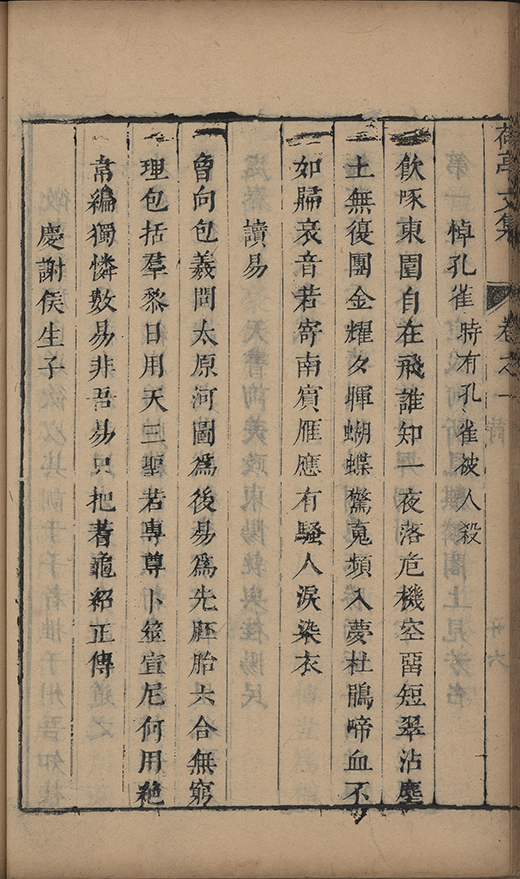 荷亭文集 卷之一
悼孔雀時有孔雀被人殺
飲啄東園自在飛誰知一夜落危機空留短翠沾塵
土無復團金耀夕暉蝴蝶驚䰟頻入夢杜鵑啼血不
如歸哀音若寄南賓雁應有騷人淚染衣
讀易
曾向包羲問太原河圖爲後易爲先胚胎六合無窮
理包括羣黎日用天三聖若專尊卜筮宣尼何用絶
韋編獨憐數易非吾易只把蓍龜紹正傳
慶謝侯生子